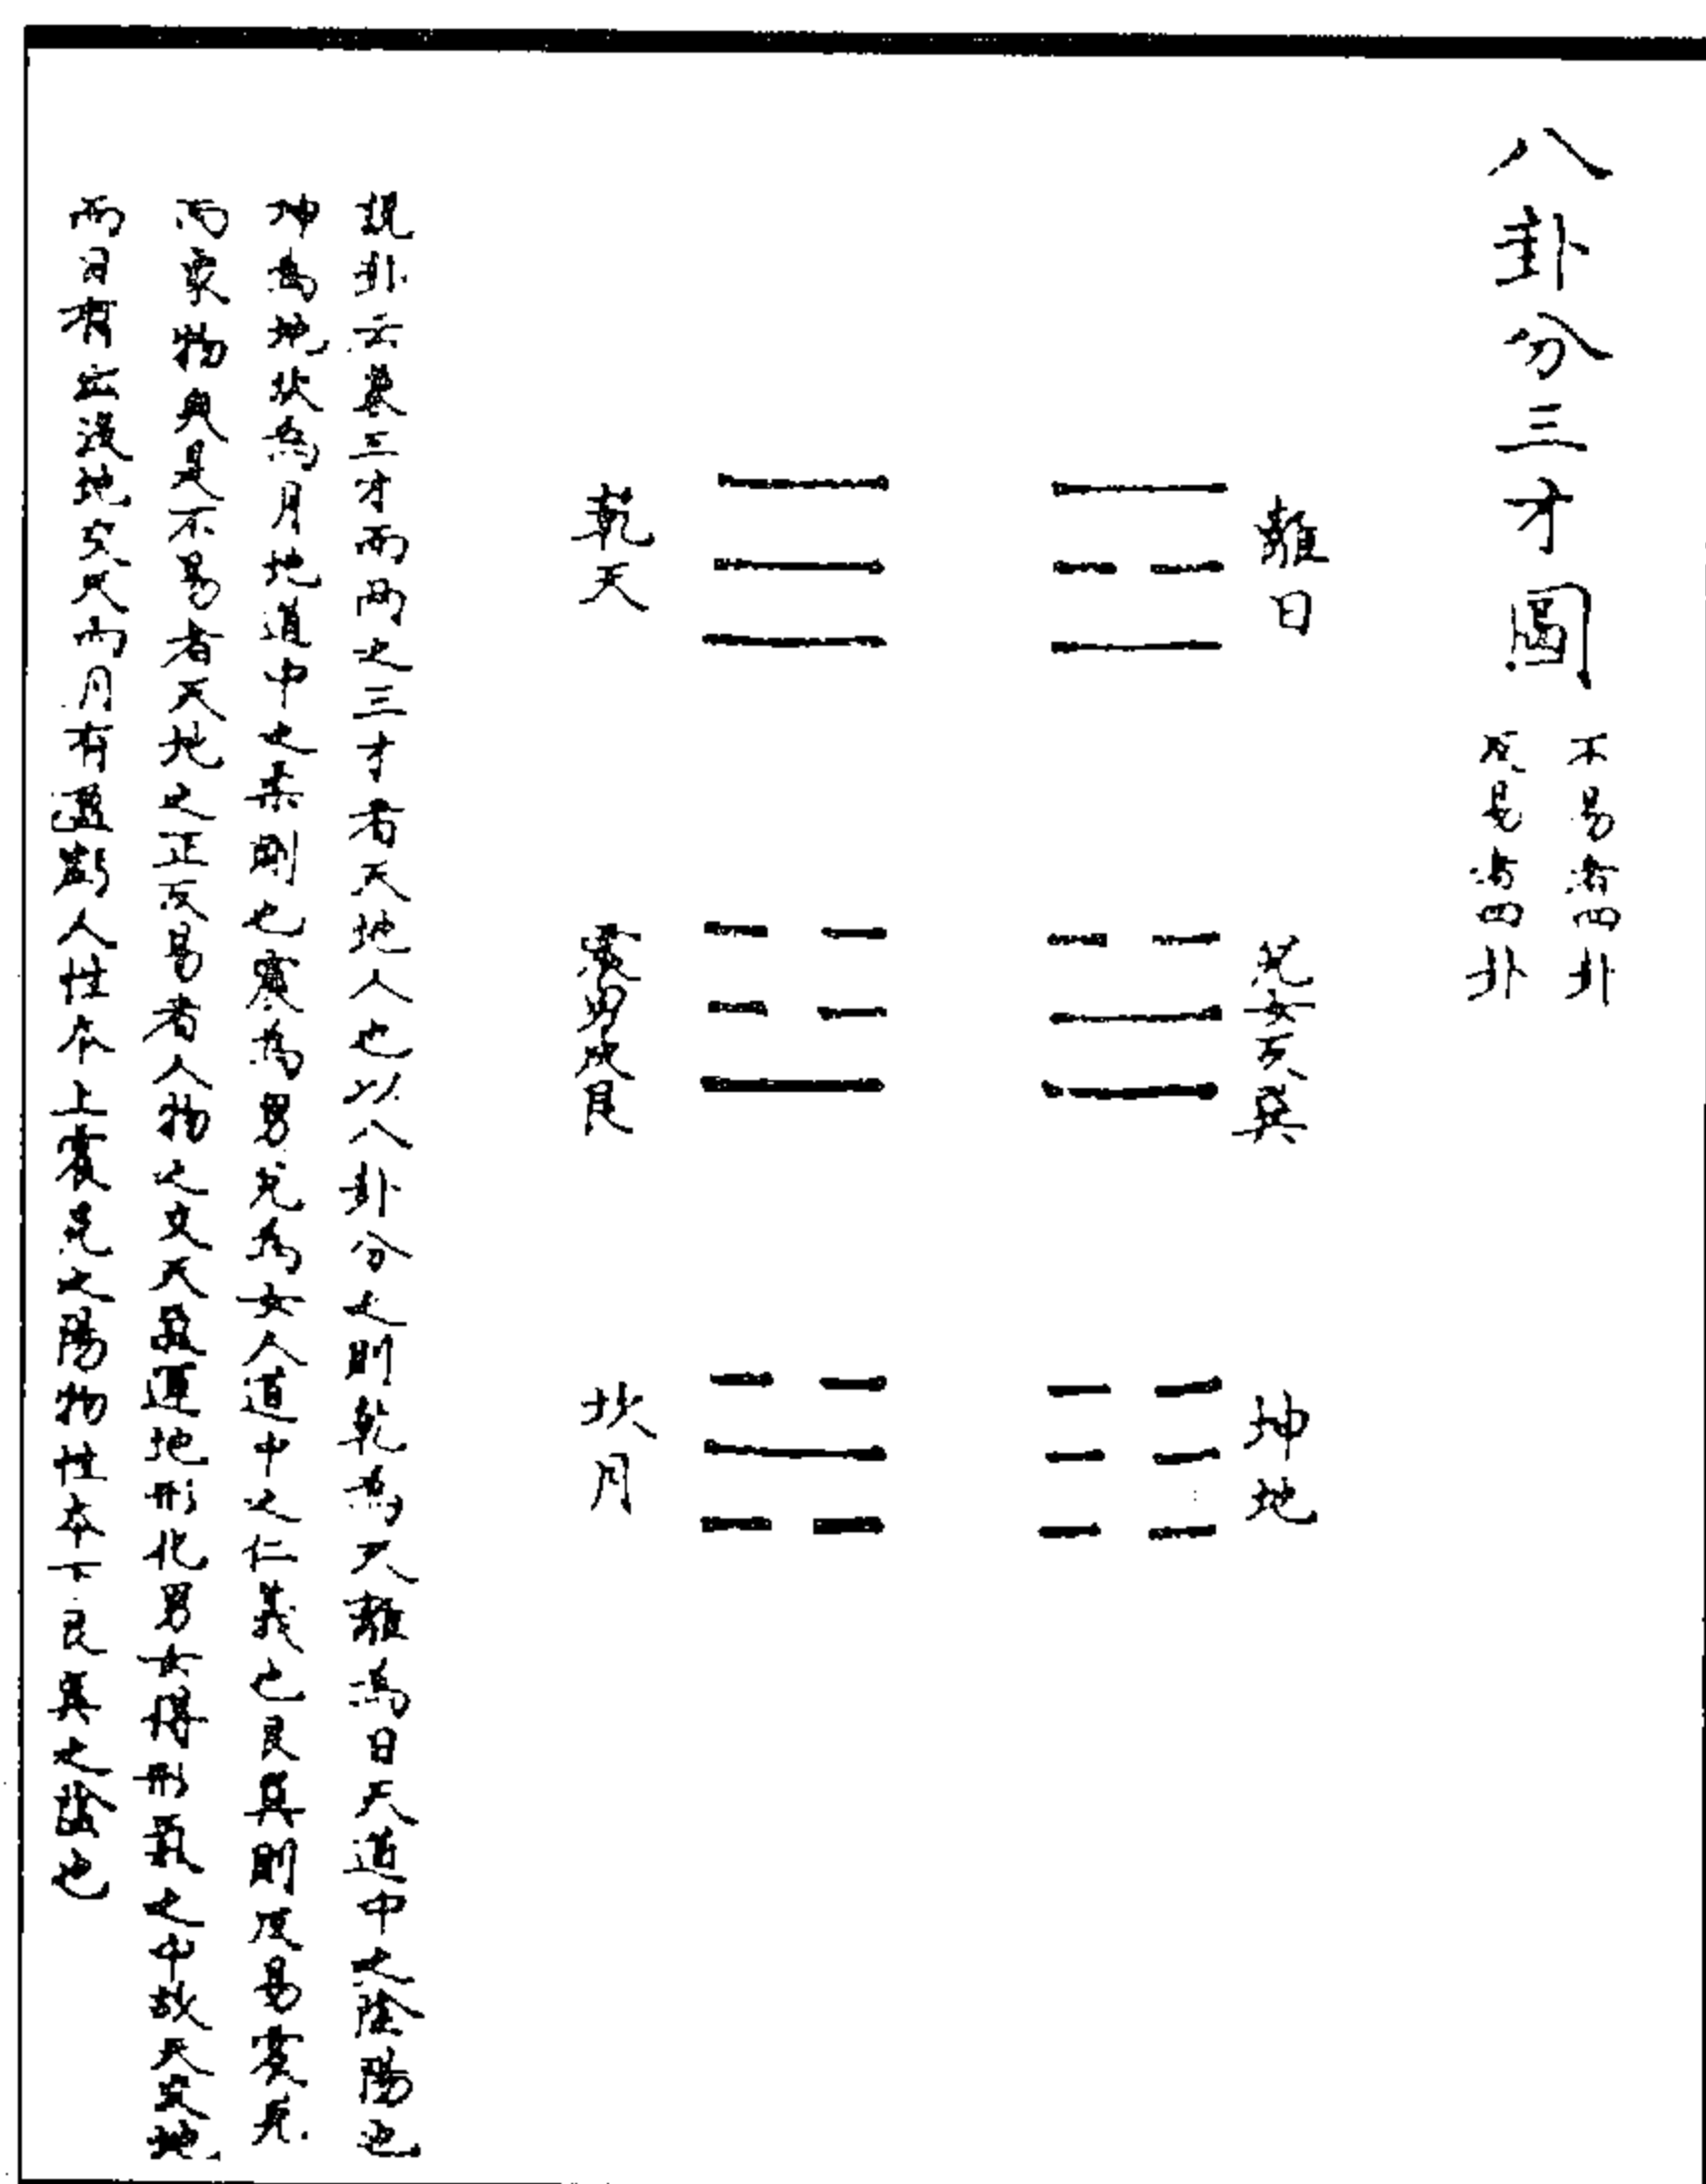 八卦分三才圖
不易者四卦
反易者四卦
離日
兌女反巽
坤地
乾天
震男反艮
坎月
說卦云兼三才而兩之三才者天地人也以八卦分之則乾為天離為日天道中之陰陽也
坤為地坎為月地道中之柔剛也震為男兌為女人道中之仁義也艮巽則反易震兌
而衆物與是不易者天地之正反易者人物之交天氣運地形化男女得形氣之中故天交地
而日有出沒地交天而月有盈虧人性本上震兌之陽物性本下艮巽之陰也